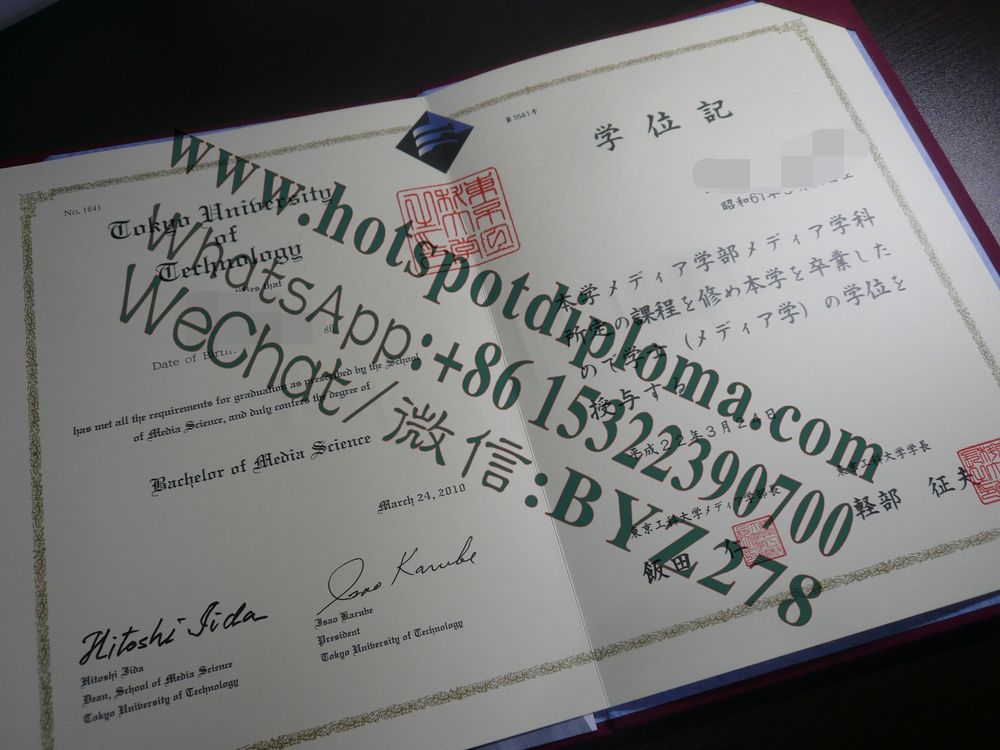 No. 1641
Tokyo University
of
Technology
Date of Birth:
has met all the requirements for graduation as prescribed by the School
of Media Science, and duly confers the degree of
Bachelor of Media Science
March 24, 2010
Hitoshi Iida
Hitoshi Iida
Dean, School of Media Science
Tokyo University of Technology
Isao Karube
Isao Karube
President
Tokyo University of Technology
第1641号
学位記
昭和61年
本学メディア学部メディア学科
所定の課程を修め本学を卒業した
ので学士(メディア学)の学位を
授与する
平成22年3月24日
東京工科大学メディア学部長
飯田 仁
東京工科大学学長
軽部 征夫
www.hotspotdiploma.com
WhatsApp:+86 15322390700
WeChat/微信:BYZ278